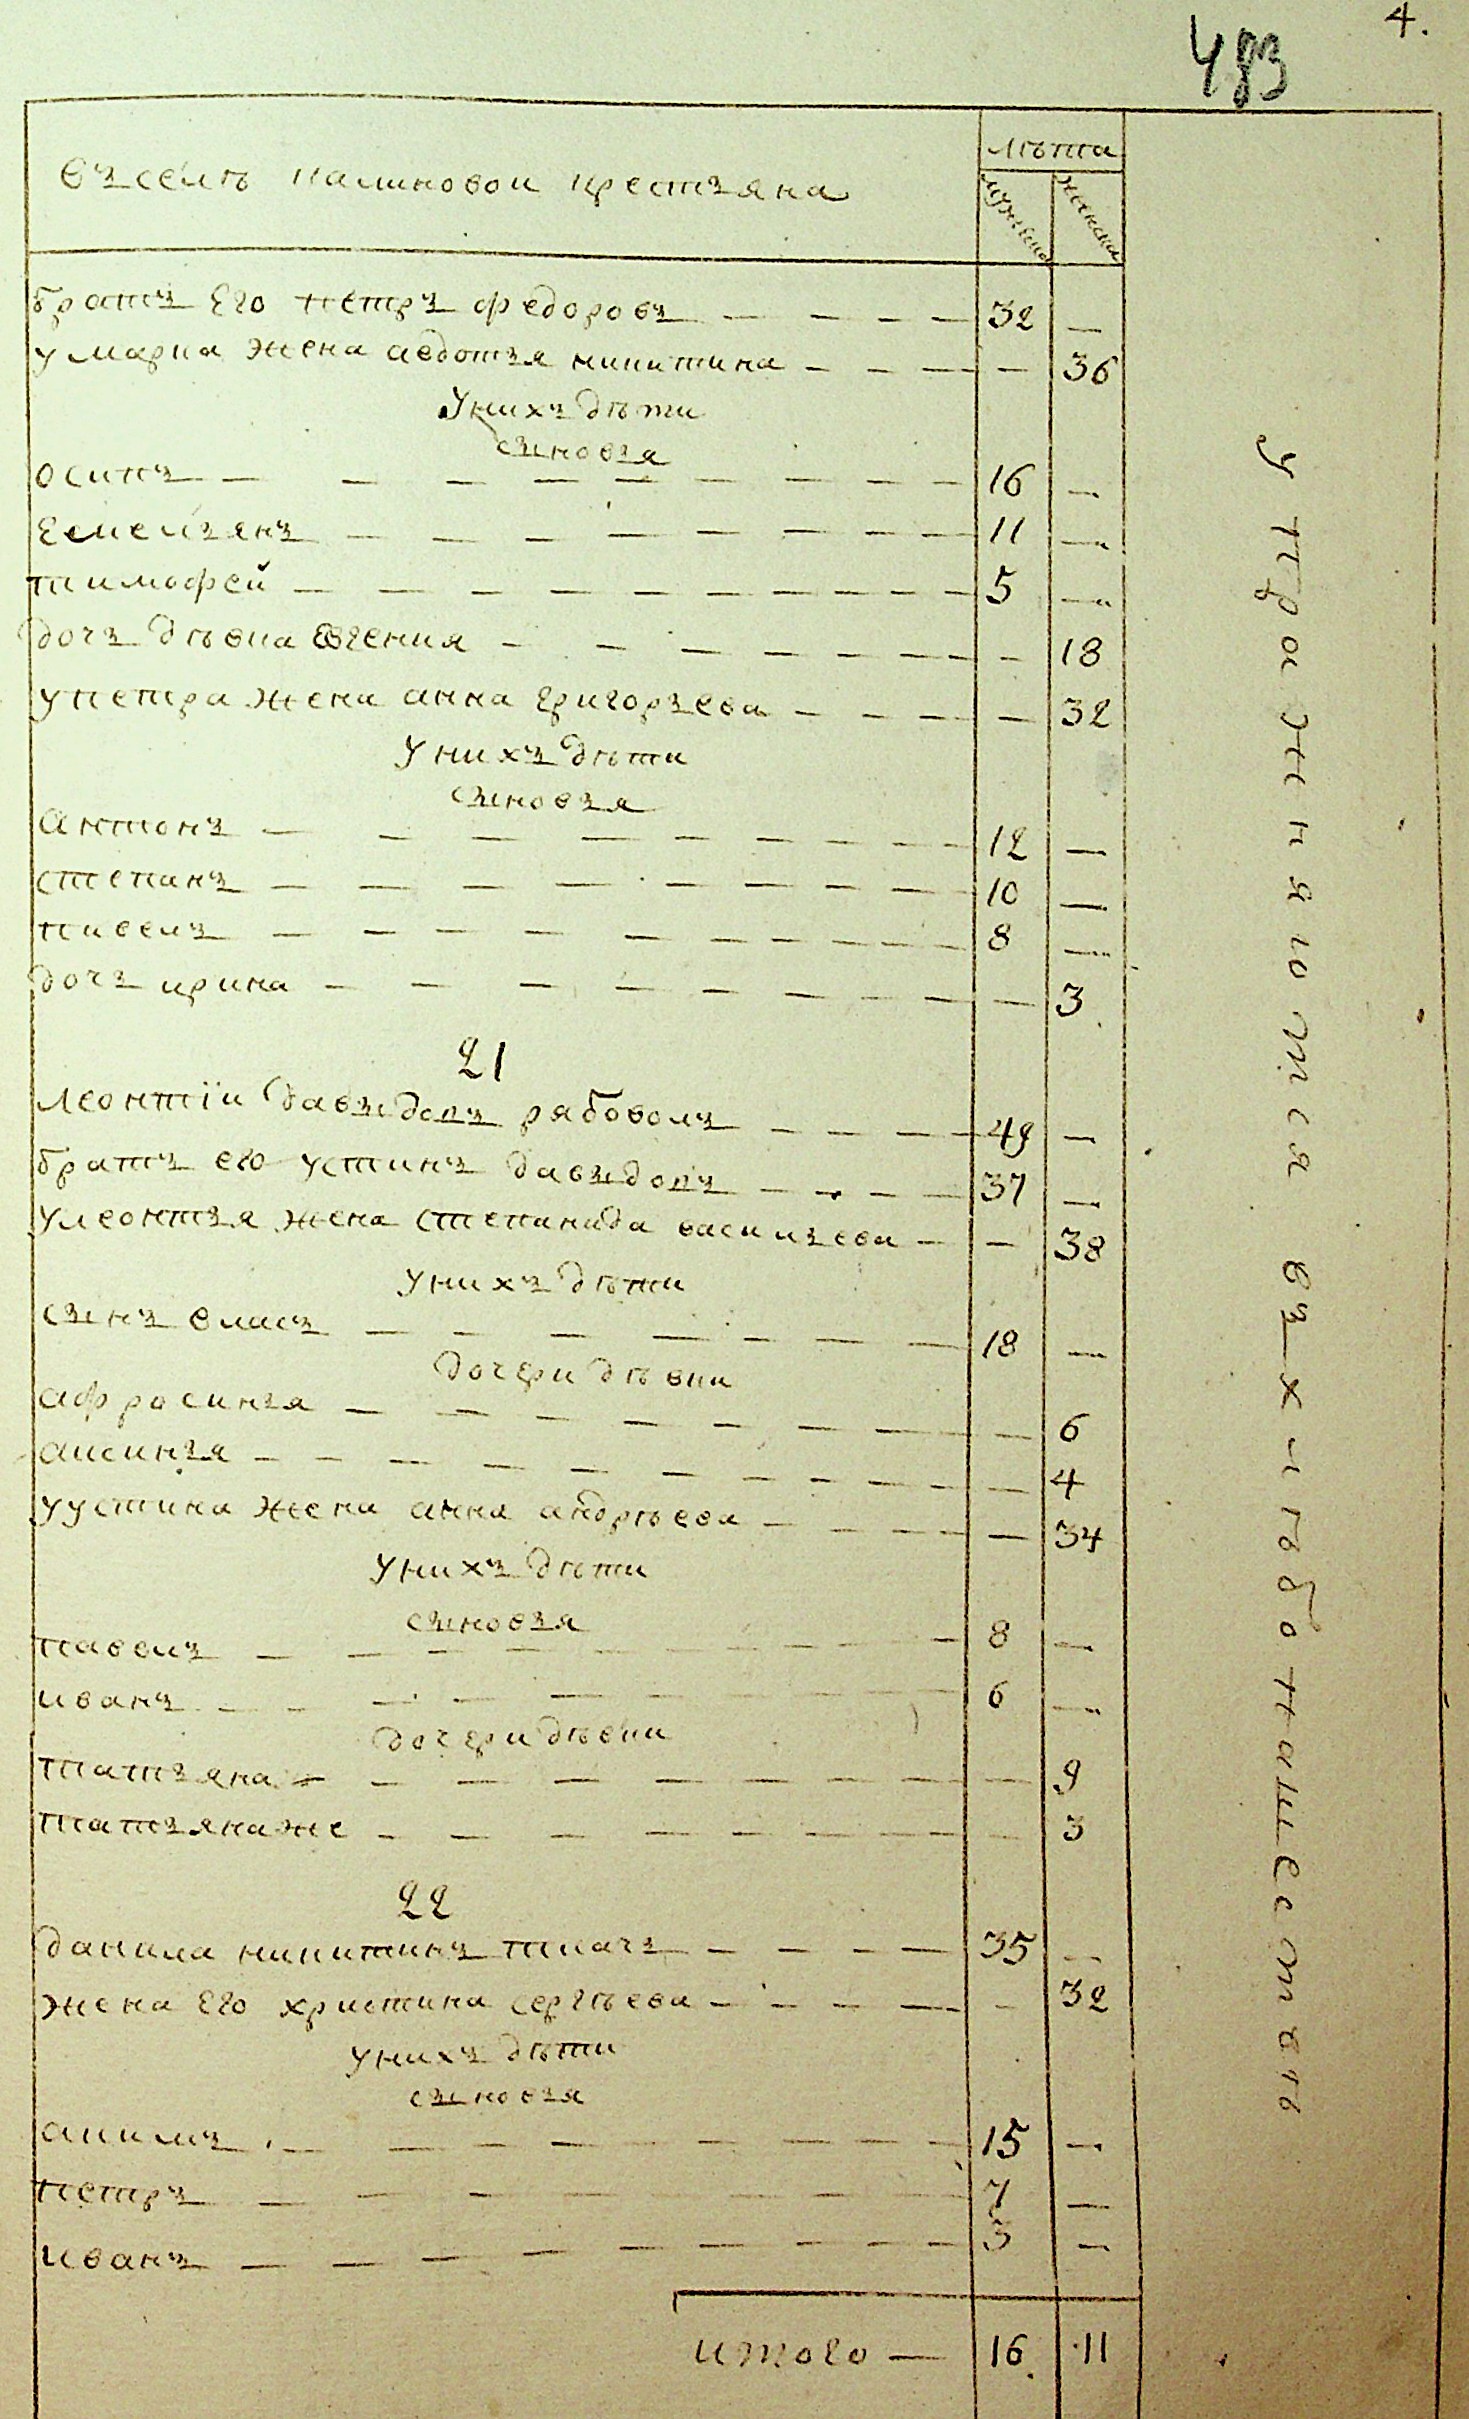 4.
483
въселѣ калиновои крестьяна
лѣта
мужеска
женска
братъ его петръ федоровъ — — — — 32 —
у марка жена авдотья никитина — — — — 36
У нихъ дѣти
сыновья
осипъ — — — — — — — — — 16 —
емельянъ — — — — — — — — 11 —
тимофей — — — — — — — — — 5 —
дочь дѣвка евгения — — — — — — — 18
у петра жена анна григорьева — — — — — 32
У нихъ дѣти
сыновья
антонъ — — — — — — — — — 12 —
степанъ — — — — — — — — — 10 —
павелъ — — — — — — — — — 8 —
дочь ирина — — — — — — — — — 3
21
леонтїи давыдовъ рябоволъ — — — — 49 —
братъ его устинъ давыдовъ — — — — 37 —
у леонтья жена степанида васильева — — 38
у нихъ дѣти
сынъ власъ — — — — — — — 18 —
дочери дѣвки
афросинья — — — — — — — — 6
аксинья — — — — — — — — — — 4
у устина жена анна андрѣева — — — — 34
у нихъ дѣти
сыновья
павелъ — — — — — — — — 8 —
иванъ — — — — — — — — 6 —
дочери дѣвки
татьяна — — — — — — — — — 9
татьяна же — — — — — — — — 3
22
данила никитинъ ткачъ — — — — 35 —
жена его христина сергѣева — — — — — 32
у нихъ дѣти
сыновья
акимъ — — — — — — — — 15 —
петръ — — — — — — — — 7 —
иванъ — — — — — — — — — 3 —
итого — 16 11
упражняются въ хлѣбопашествѣ